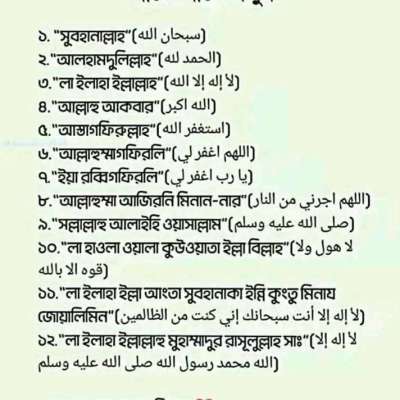 ১. "সুবহানাল্লাহ"(سبحان الله)
২."আলহামদুলিল্লাহ"(الحمد لله)
৩."লা ইলাহা ইল্লাল্লাহ"(لأ إله إلا الله)
৪."আল্লাহু আকবার"(الله اكبر)
৫."আস্তাগফিরুল্লাহ"(استغفر الله)
৬."আল্লাহুম্মাগফিরলি"(اللهم اغفر لي)
৭."ইয়া রব্বিগফিরলি"(يا رب اغفر لي)
৮."আল্লাহুম্মা আজিরনি মিনান-নার"(اللهم اجرني من النار)
৯."সল্লাল্লাহু আলাইহি ওয়াসাল্লাম"(صلى الله عليه وسلم)
১০."লা হাওলা ওয়ালা কুউওয়াতা ইল্লা বিল্লাহ"(لا هول ولا
قوه الا بالله)
১১."লা ইলাহা ইল্লা আংতা সুবহানাকা ইন্নি কুংতু মিনায
জোয়ালিমিন"(لأ إله إلا أنت سبحانك إني كنت من الظالمين)
১২."লা ইলাহা ইল্লাল্লাহু মুহাম্মাদুর রাসূলুল্লাহ সাঃ"(لأ إله إلا
الله محمد رسول الله صلى الله عليه وسلم)